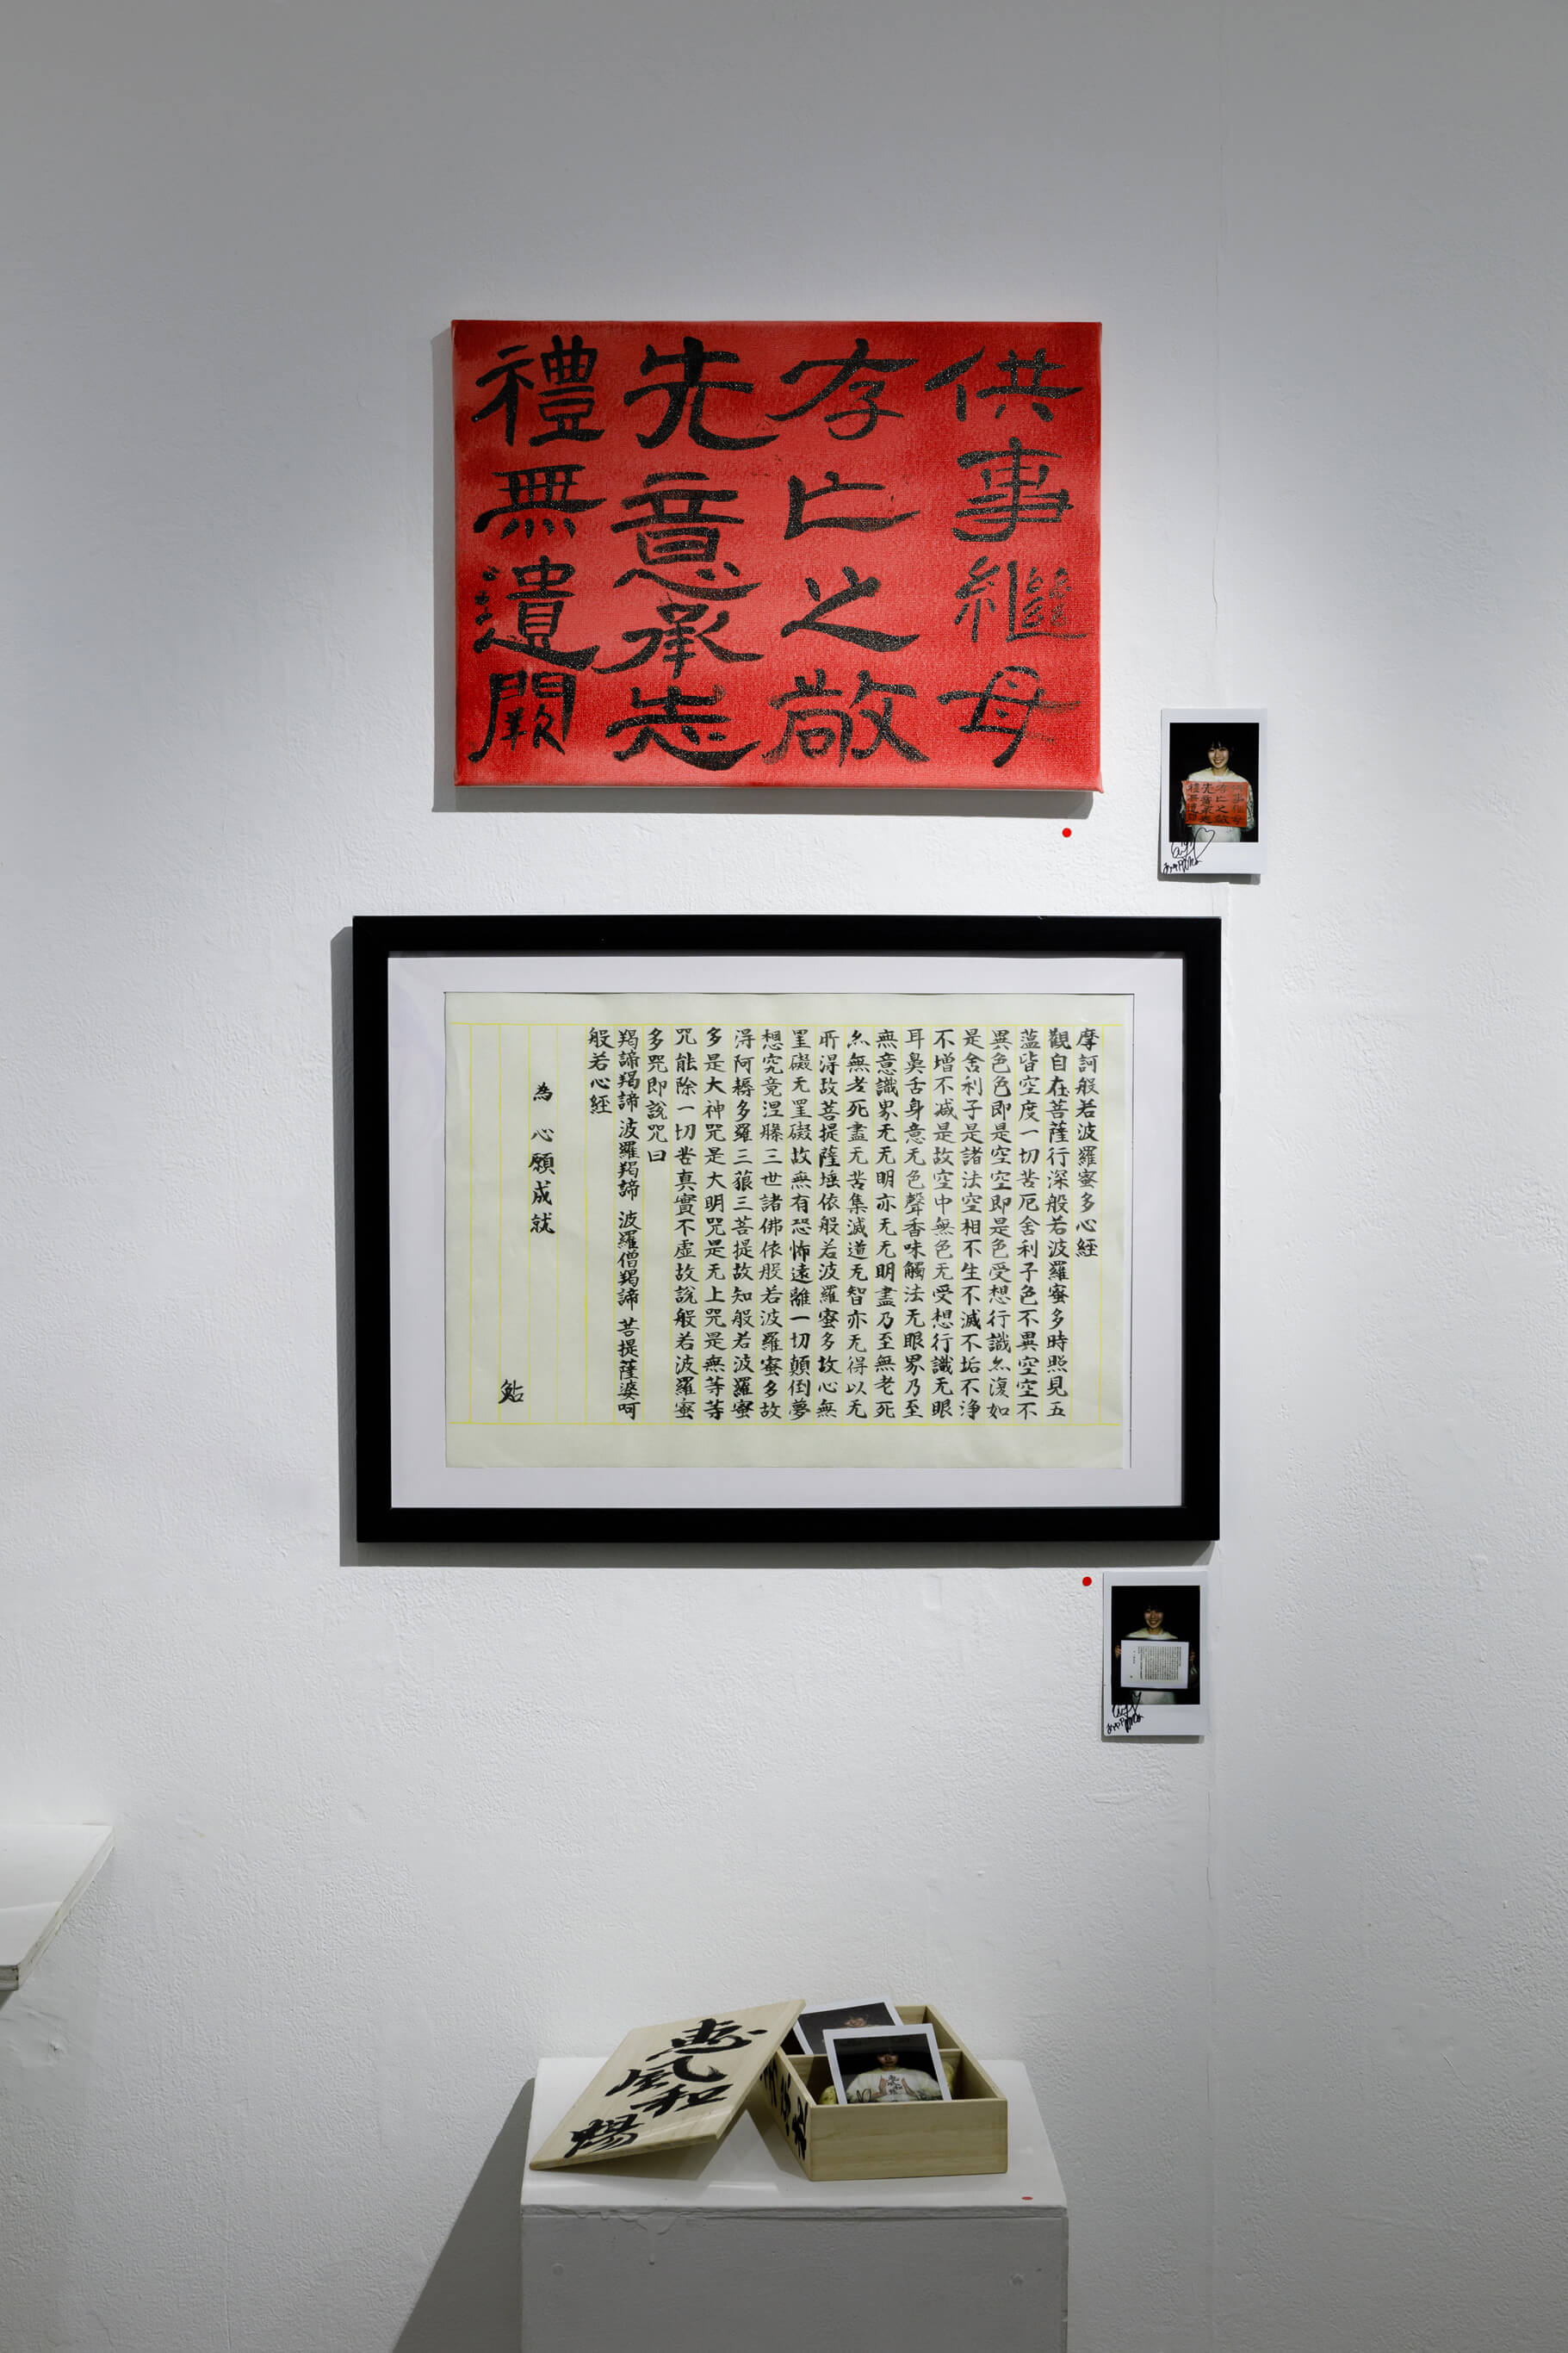 供事繼母
存亡之敬
先意承志
禮無遺闕
摩訶般若波羅蜜多心經
觀自在菩薩行深般若波羅蜜多時照見五
蕰皆空度一切苦厄舍利子色不異空空不
異色色即是空空即是色受想行識亦復如
是舍利子是諸法空相不生不滅不垢不浄
不增不减是故空中無色无受想行識无眼
耳鼻舌身意无色聲香味觸法无眼界乃至
無意識界无无明亦无无明盡乃至無老死
亦無老死盡无苦集滅道无智亦无得以无
所得故菩提薩埵依般若波羅蜜多故心無
罣礙无罣礙故無有恐怖遠離一切顛倒夢
想究竟涅槃三世諸佛依般若波羅蜜多故
得阿耨多羅三藐三菩提故知般若波羅蜜
多是大神咒是大明咒是无上咒是無等等
咒能除一切苦真實不虛故說般若波羅蜜
多咒即說咒曰
羯諦羯諦 波羅羯諦 波羅僧羯諦 菩提薩婆呵
般若心經
為 心願成就
鮎
惠風和暢